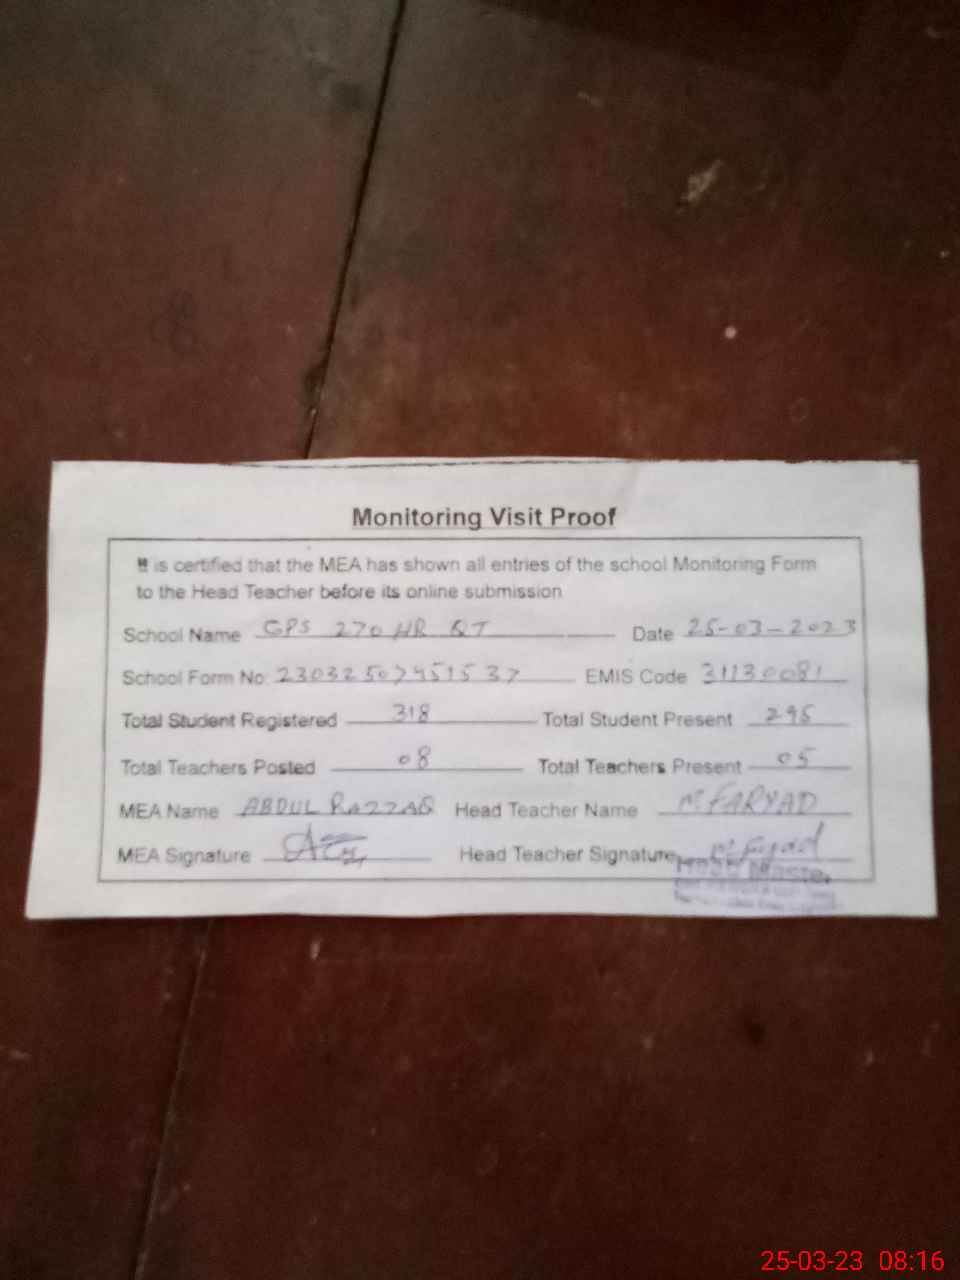 Monitoring Visit Proof
It is certified that the MEA has shown all entries of the school Monitoring Form
to the Head Teacher before its online submission
School Name GPS 270 HR QT Date 25-03-2023
School Form No. 230325074515 37 EMIS Code 31130081
Total Student Registered 318 Total Student Present 295
Total Teachers Posted 08 Total Teachers Present 05
MEA Name ABDUL RAZZAQ Head Teacher Name M FARYAD
MEA Signature Head Teacher Signature M Faryad
Head Master
25-03-23 08:16